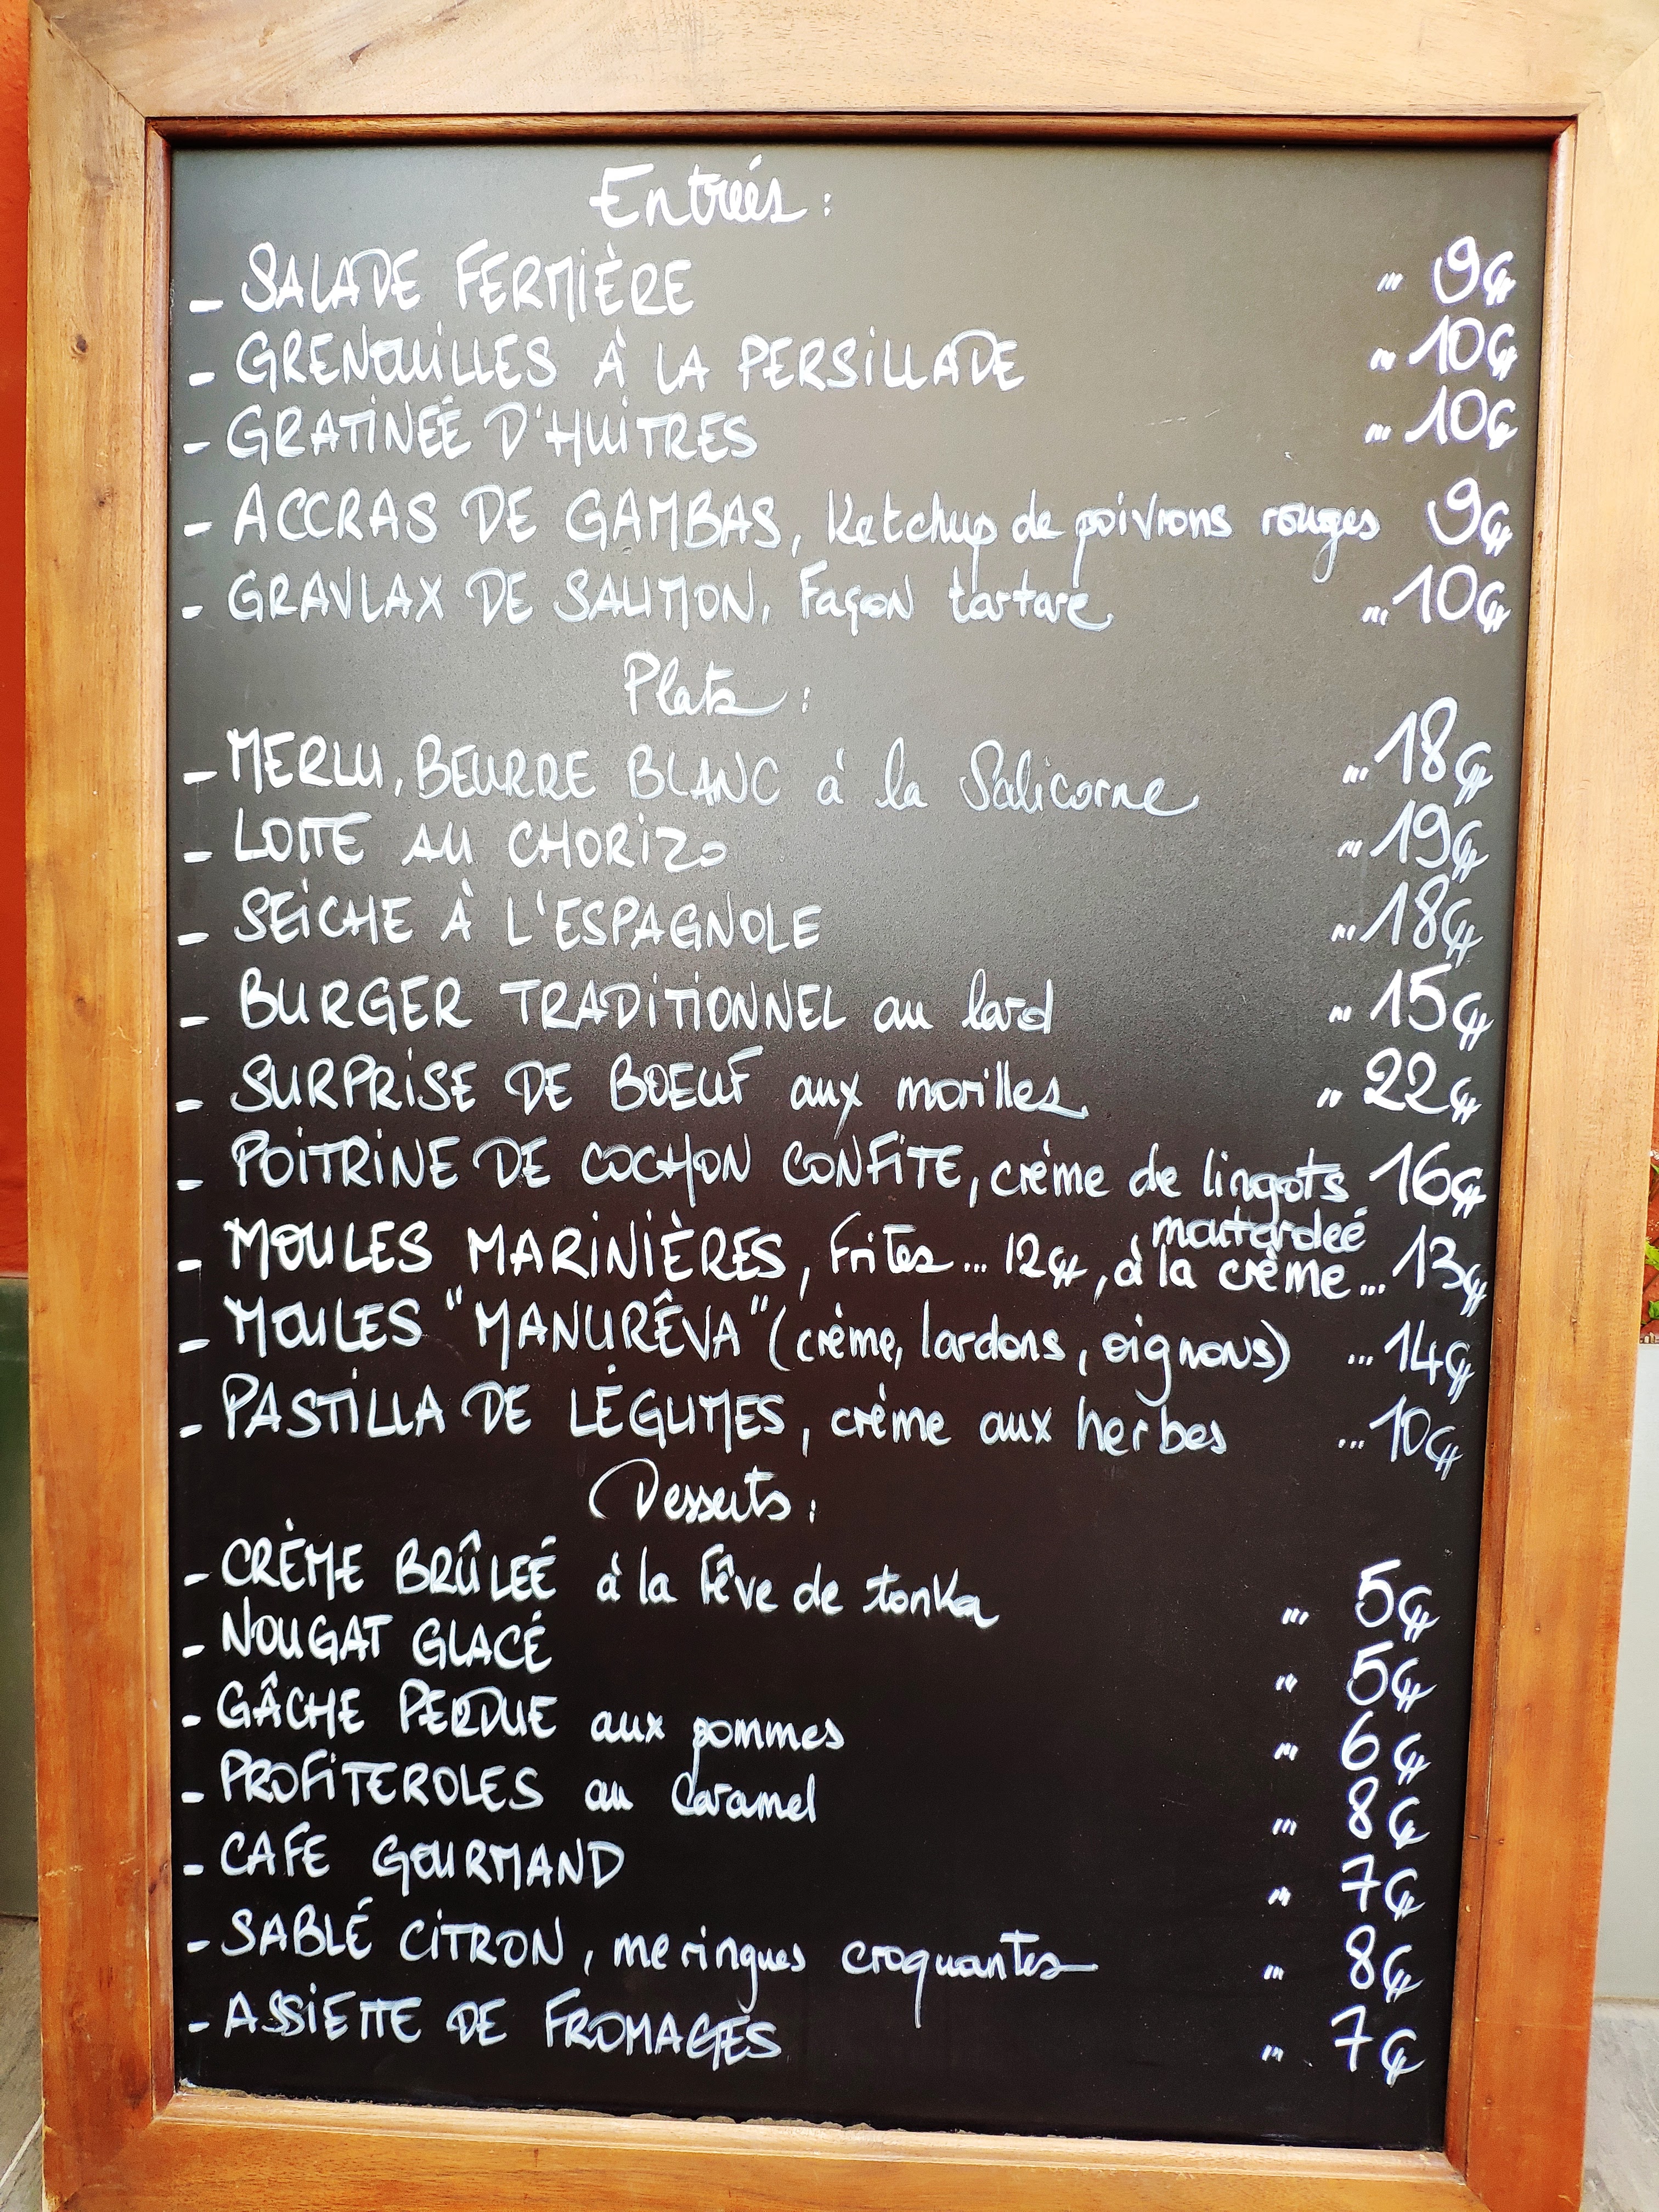 Entrées :
- SALADE FERMIÈRE ... 9€
- GRENOUILLES À LA PERSILLADE ... 10€
- GRATINÉE D'HUITRES ... 10€
- ACCRAS DE GAMBAS, Ketchup de poivrons rouges 9€
- GRAVLAX DE SAUMON, Façon tartare ... 10€
Plats :
- MERLU, BEURRE BLANC à la Salicorne ... 18€
- LOTTE AU CHORIZO ... 19€
- SEICHE À L'ESPAGNOLE ... 18€
- BURGER TRADITIONNEL au lard ... 15€
- SURPRISE DE BOEUF aux morilles .. 22€
- POITRINE DE COCHON CONFITE, crème de lingots 16€
moutardeé
- MOULES MARINIÈRES, Frites ... 12€, à la crème ... 13€
- MOULES "MANURÊVA" (crème, lardons, oignons) ... 14€
- PASTILLA DE LÉGUMES, crème aux herbes ... 10€
Desserts :
- CRÈME BRÛLEÉ à la fêve de tonka ... 5€
- NOUGAT GLACÉ ... 5€
- GÂCHE PERDUE aux pommes ... 6€
- PROFITEROLES au Caramel ... 8€
- CAFE GOURMAND ... 7€
- SABLÉ CITRON, meringues croquantes ... 8€
- ASSIETTE DE FROMAGES ... 7€